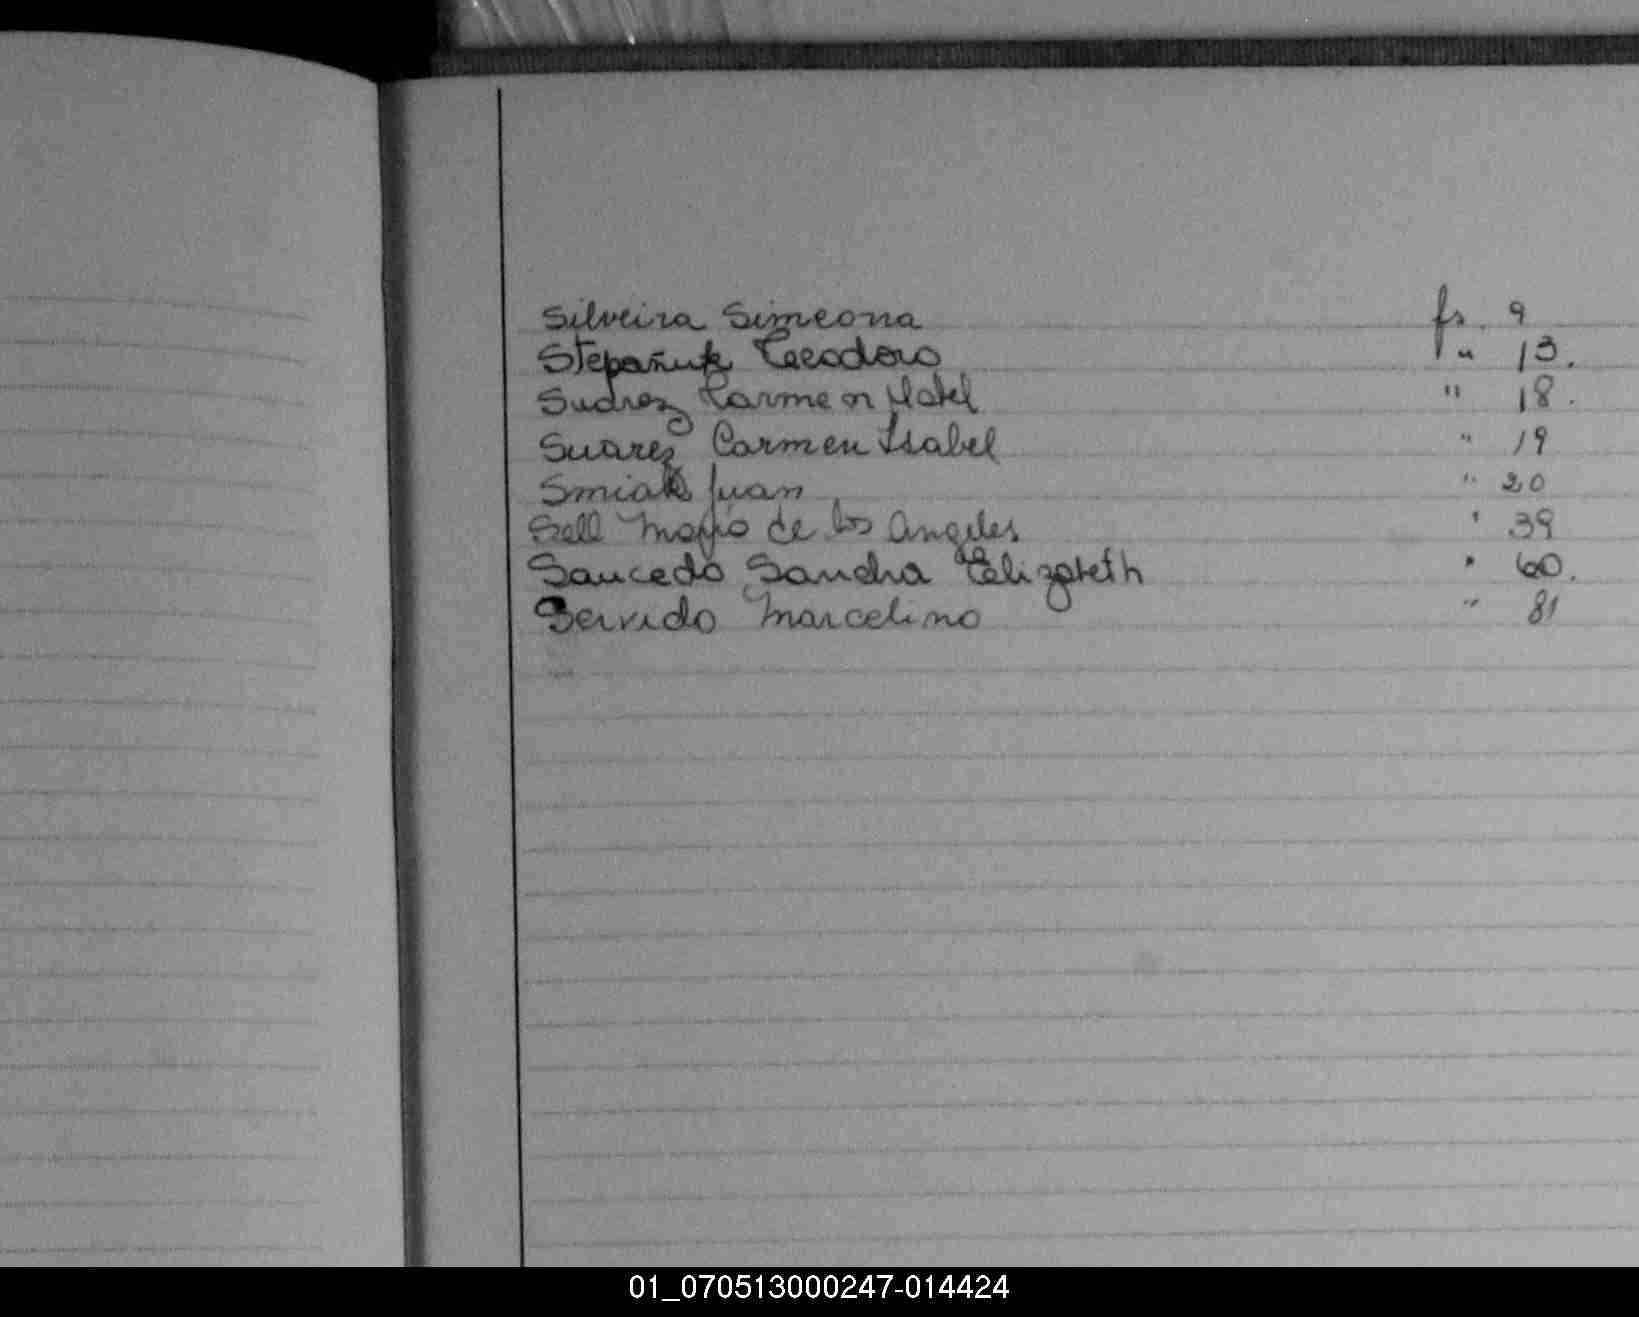 Silveira Simeona fs. 9
Stepañuk Teodoro " 13.
Suarez Carmen Mabel " 18.
Suarez Carmen Isabel " 19
Smiak Juan " 20
Sell Maria de los Angeles " 39
Saucedo Sandra Elizabeth " 60.
Servido Marcelino " 81
01_070513000247-014424